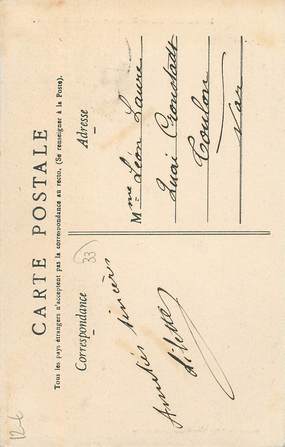 CARTE POSTALE
Tous les pays étrangers n'acceptent pas la correspondance au recto. (Se renseigner à la Poste).
Correspondance
Adresse
33
Amitiés sincères
Mme Léon Laure
Quai Cronstadt
Toulon
Var
12-6